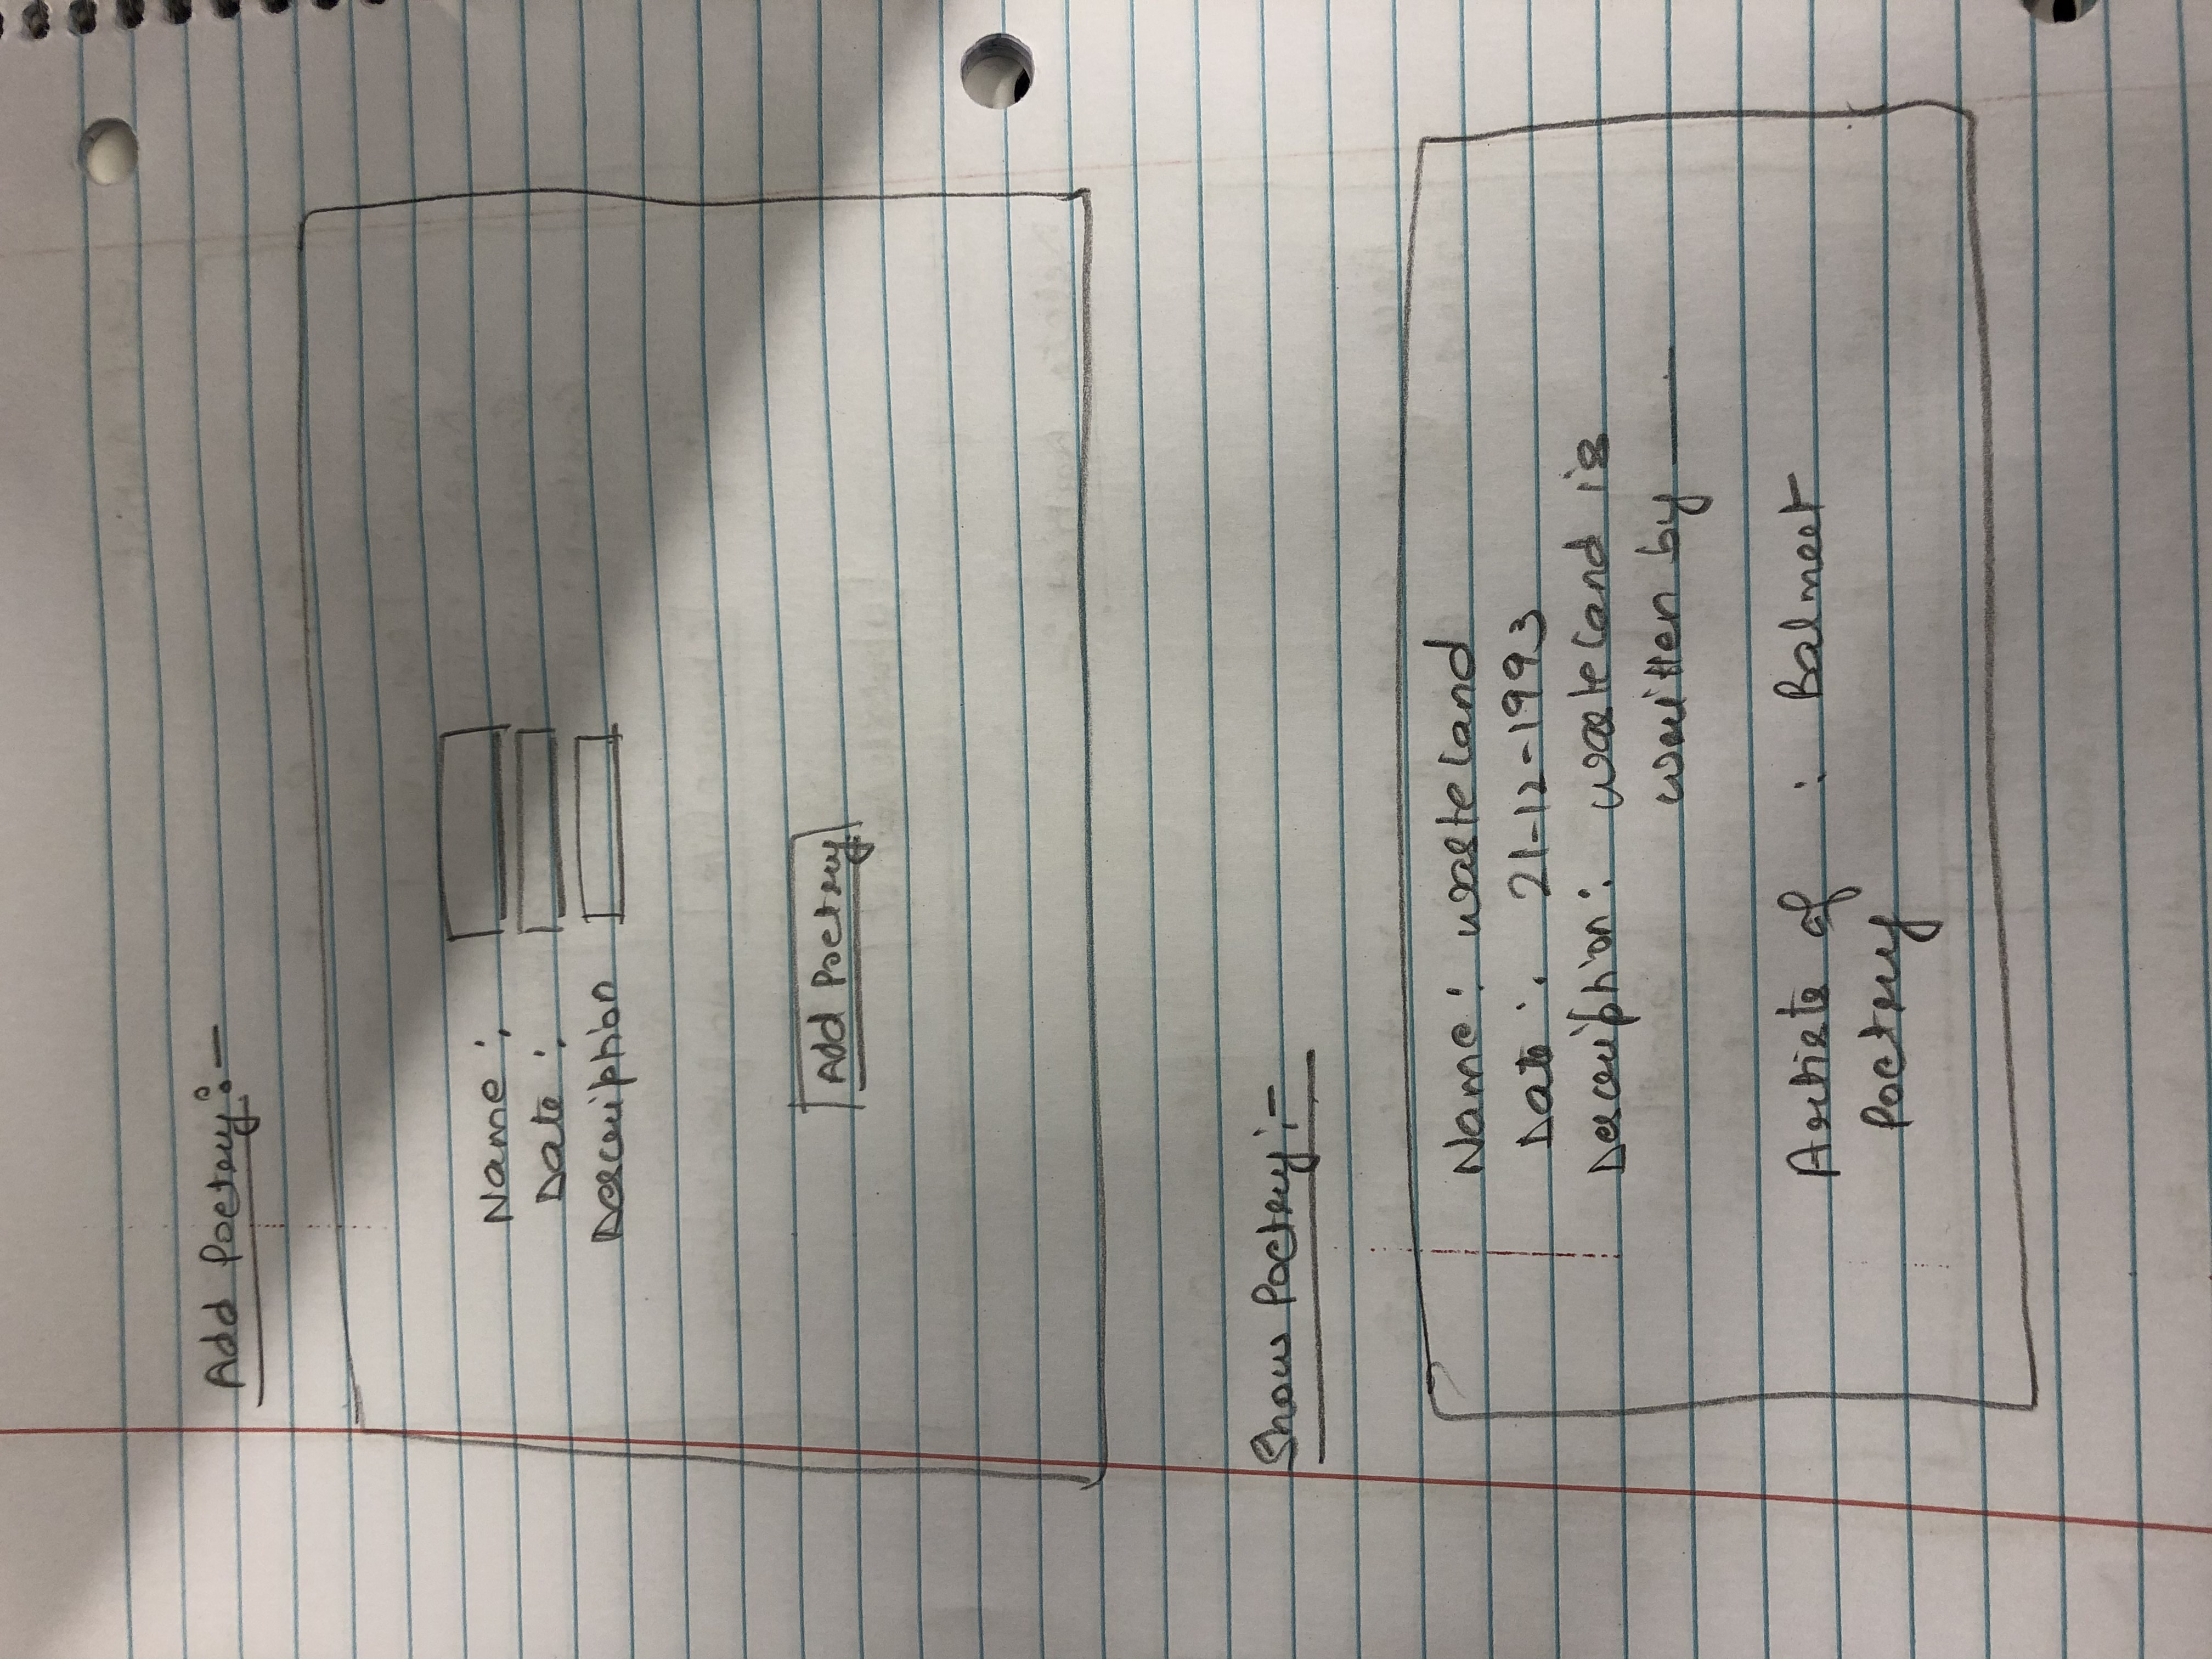 Add Poetry :-
Name :
Date :
Description
Add Poetry
Show Poetry :-
Name : wasteland
Date : 21-12-1993
Description : wasteland is
written by ——
Artists of : Balmeet
Poetry